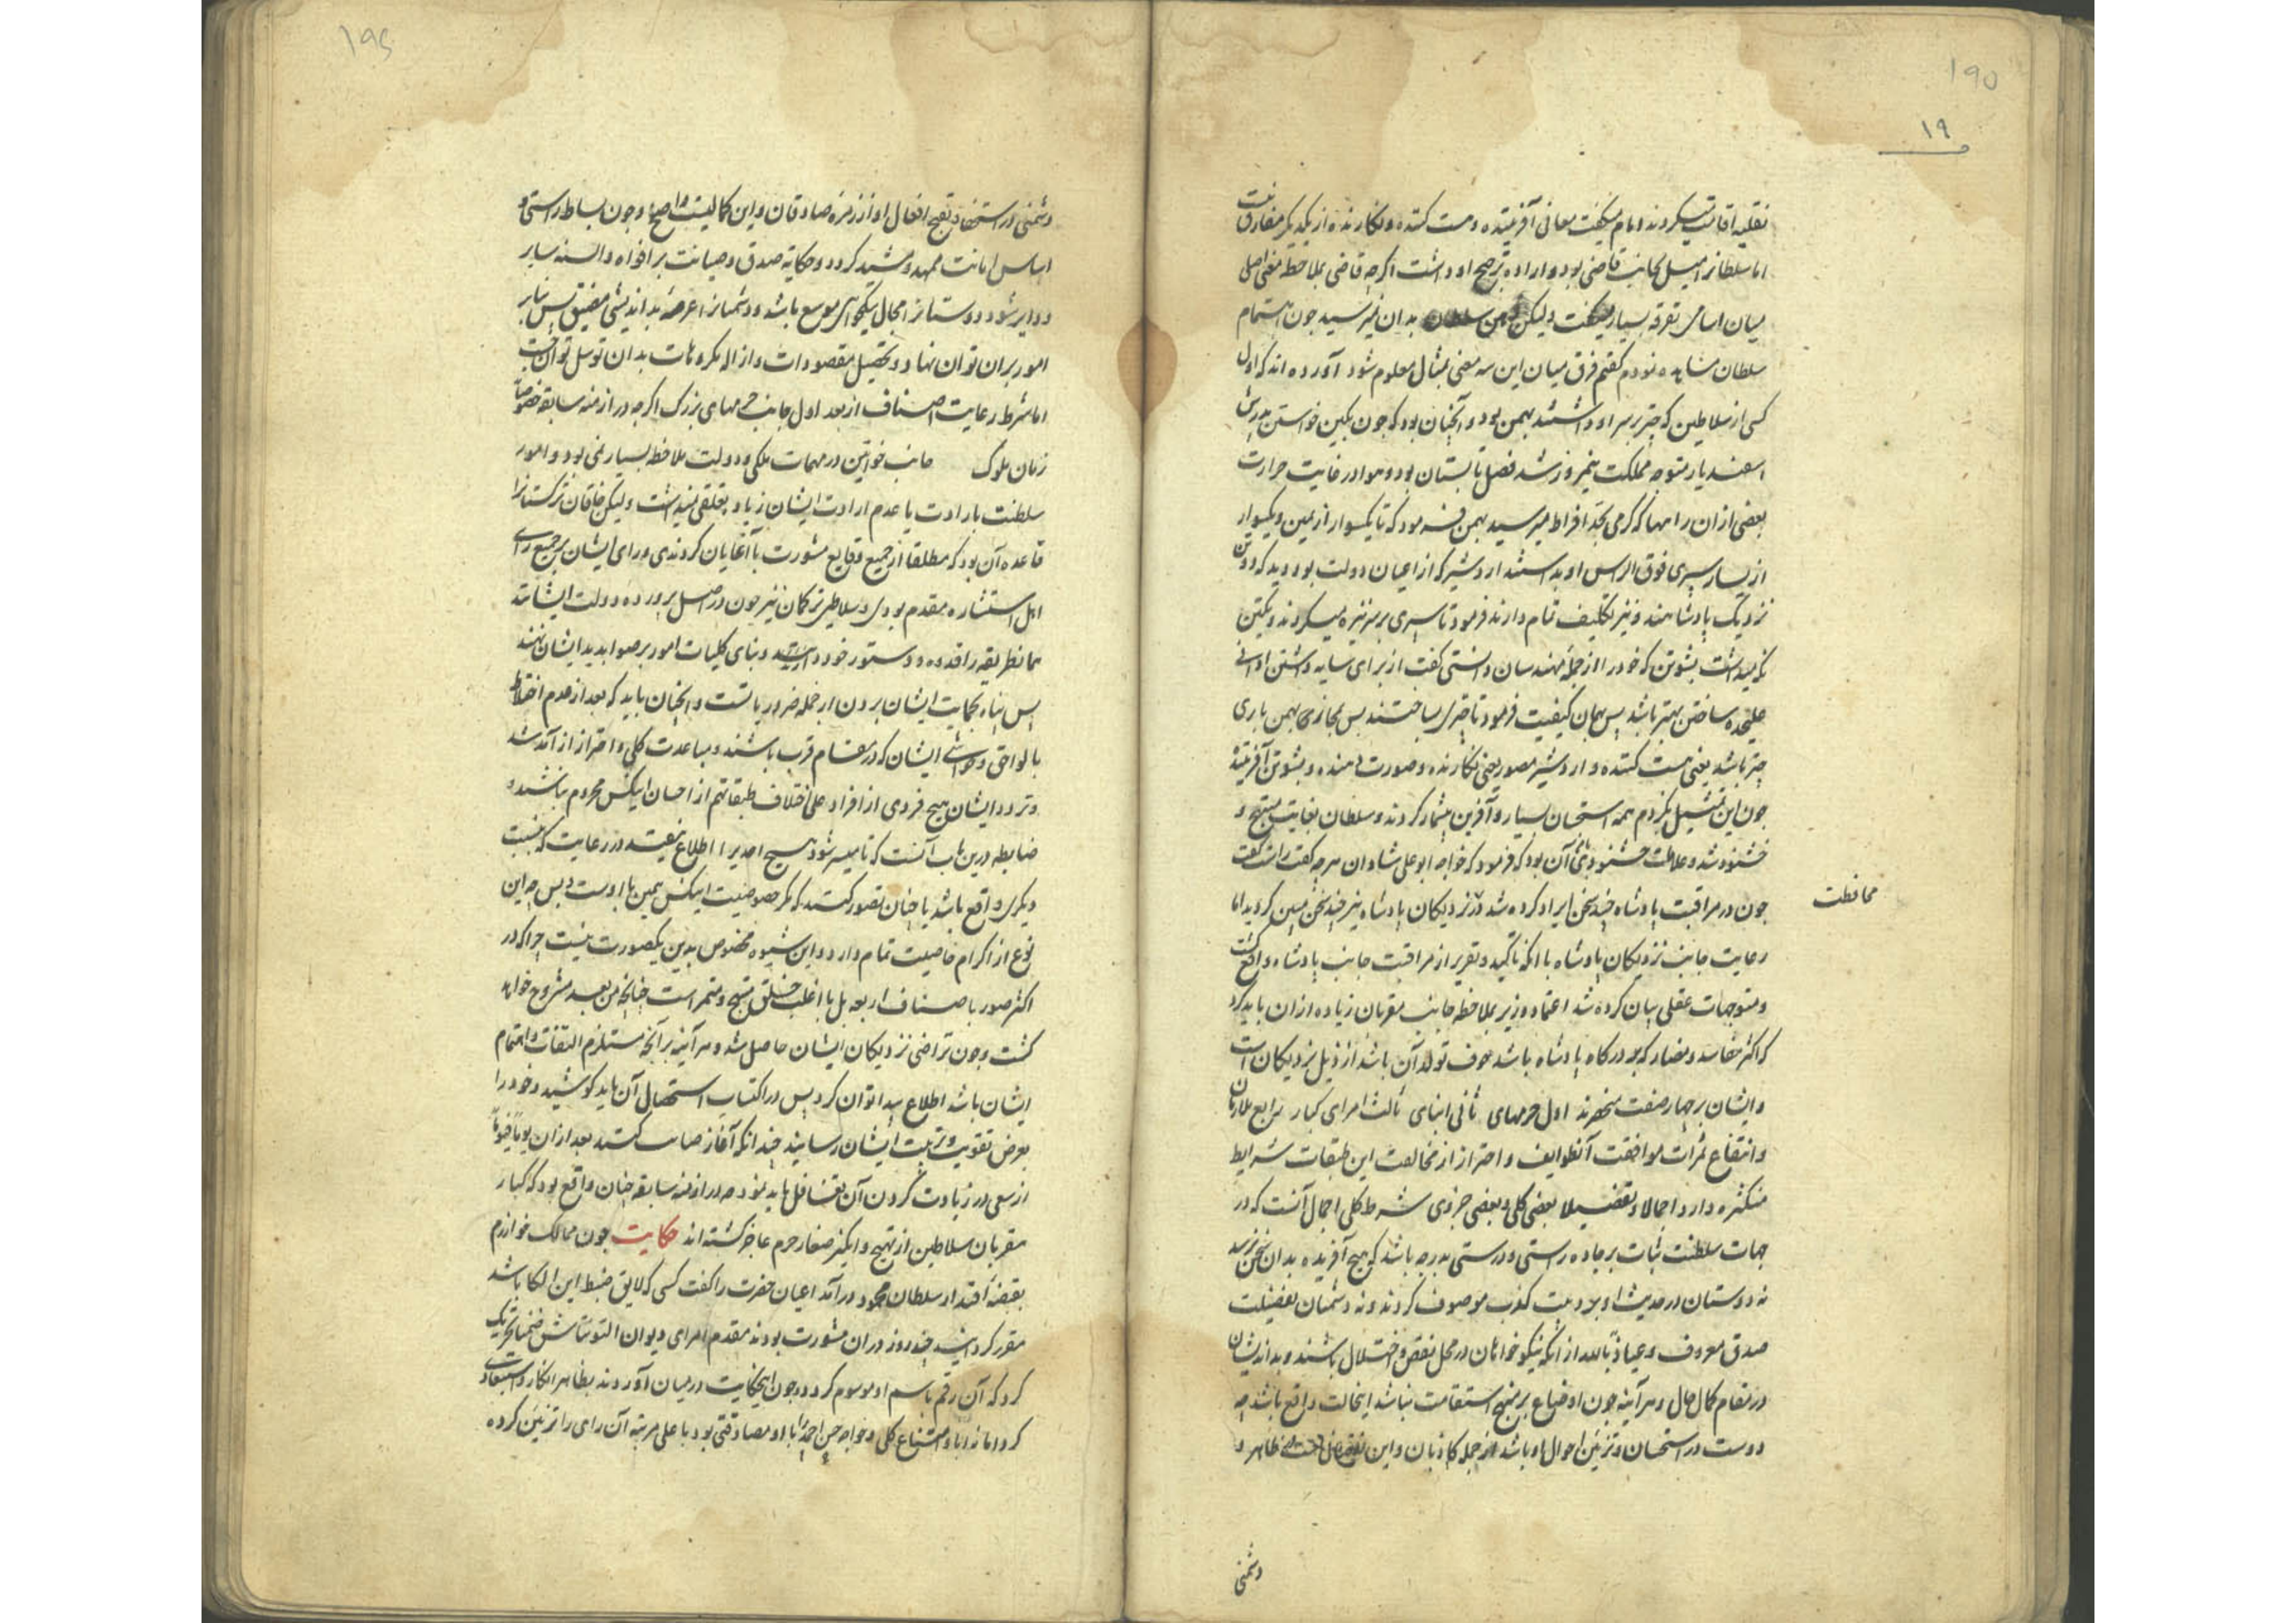 ۱۹۵
۱۹
نقلیه اقامت میکردند و امام میگفت معانی آفریننده و هست کننده و نگارنده از یکدیگر متفارقست
اما سلطانرا میل بجانب قاضی بود و اراده ترجیح او داشت اگرچه قاضی بملاحظه معنی اصلی
میان اسامی تفرقه بسیار میگفت ولیکن ذهن سلطان بدان نمیرسید چون اهتمام
سلطان مشاهده نمودم گفتم فرق میان این سه معنی بمثال معلوم شود آورده اند که اول
کسی از سلاطین که چتر بر سر او داشتند بهمن بود و آنچنان بود که چون بکین خواستن پدرش
اسفندیار متوجه مملکت نیمروز شد فصل تابستان بود و هوا در غایت حرارت
بعضی ازان راهها که گرمی بحد افراط میرسید بهمن فرمود که تا یکسوار از یمین و یکسوار
از یسار سپری فوق الراس او بداشتند اردشیر که از اعیان دولت بود دید که دو تن
نزدیک پادشاهند و نیز تکلیف تمام دارند فرمود تا سپری بر سر نیزه میکردند و یکتن
نگه میداشت بشوتن که خود را از جمله مهندسان دانستی گفت از برای سایه داشتن او آلتی
علیحده ساختن بهتر باشد پس بهمان کیفیت فرمود تا چتری ساختند پس بمجازی بهمن باری
چتر باشد یعنی هست کننده و اردشیر مصور یعنی نگارنده و صورت دهنده و بشوتن آفریننده
چون این تمثیل بکردم همه استحسان بسیار و آفرین بیشمار کردند و سلطان بغایت مبتهج و
خشنود شد و علامت خشنودیش آن بود که فرمود که خواجه ابوعلی شادان هرچه گفت راست گفت
چون در مراقبت پادشاه چند سخن ایراد کرده شد در نزدیکان پادشاه نیز چند سخن مبین گردید اما
محافظت
رعایت جانب نزدیکان پادشاه با آنکه تاکید و تقریر از مراقبت جانب پادشاه واقع گشت
و متوجهات عقلی بیان کرده شد اعتماد وزیر بملاحظه جانب مقربان زیاده ازان باید کرد
که اکثر مفاسد و مضار که بدرگاه پادشاه باشد خوف تولد آن باشد از ذیل نزدیکان است
و ایشان بر چهار صنف منحصرند اول حرمهای ثانی ابنای ثالث امرای کبار رابع ملازمان
و انتفاع ثمرات موافقت آنطوایف و احتراز از مخالفت این طبقات شرایط
متکثره دارد اجمالا و تفصیلا بعضی کلی و بعضی جزوی شرط کلی اجمال آنست که در
جهات سلطنت ثبات بر جاده راستی و درستی بدرجه باشد که هیچ آفریده بدان سخن نرسد
نه دوستان در حدیث او بردیت کذب موصوف کردند و نه دشمنان بفضیلت
صدق معروف و عیاذا بالله از آنکه نیکوخواهان در محل نقص و اختلال باشند و بداندیشان
در مقام کمال حال و هر آینه چون اوضاع بر منهج استقامت نباشد اینحالت واقع باشد چه
دوست در استحسان و تزیین احوال او باشد از جمله کاذبان و این ظاهر و
دشمنی
۱۹۶
دشمنی در استخفاف و تقبیح افعال او از زمره صادقان و این کمالیت واضح و چون بساط راستی و
اساس امانت ممهد و مشید گردد و حکایة صدق و صیانت بر افواه و السنه سایر
و دایر شود دوستانرا مجال نیکوخواهی موسع باشد و دشمنانرا عرصه بداندیشی مضیق پس بنابر
امور بران توان نهاد و تحصیل مقصودات و ازاله مکروهات بدان توسل توان جست
اما شرط رعایت اصناف اربعه اول جانب حرمهای بزرگ اگرچه در ازمنه سابقه خصوصا
زمان ملوک جانب خواتین در مهمات ملکی و دولت ملاحظه بسیار نمی بود و امور
سلطنت بارادت یا عدم ارادت ایشان زیاده تعلقی نمیداشت ولیکن خاقان ترکستانرا
قاعده آن بود که مطلقا از جمیع وقایع مشورت با آغایان کردندی و رای ایشان بر جمیع رای
اهل استشاره مقدم بودی و سلاطین ترکمان نیز چون در اصل برورده دولت ایشانند
همانطریقه را قدوه و دستور خود داشتند و بنای کلیات امور بر صوابدید ایشان نهند
پس پناه بحمایت ایشان بردن از جمله ضروریاتست و آنچنان باید که بعد از عدم اختلاط
با لواحق و حواشی ایشان که در مقام قرب باشند و مباعدت کلی و احتراز از آمد شد
و تردد ایشان هیچ فردی از افراد علی اختلاف طبقاتهم از احسان اینکس محروم نباشند و
ضابطه درین باب آنست که تا میسر شود هیچ احدیرا اطلاع نیفتد در رعایت که بنسبت
دیگری واقع باشد یا چنان تصور کنند که مگر خصوصیت اینکس همین با اوست و بس چه این
نوع از اکرام خاصیت تمام دارد و این شیوه مخصوص بدین یکصورت نیست چرا که در
اکثر صور با اصناف اربعه بل با اغلب خلق منتج و مثمر است چنانچه من بعد مشروح خواهد
گشت و چون تراضی نزدیکان ایشان حاصل شد و هر آینه بر آنچه مستلزم التفات و اهتمام
ایشان باشد اطلاع پیدا توان کرد پس در اکتساب استحصال آن باید کوشید و خود را
بعرض تقویت و تربیت ایشان رسانید چندانکه آغاز حمایت کنند بعد ازان یوما فیوما
از سعی در زیادت کردن آن تغافل باید نمود چه در ازمنه سابقه چنان واقع بود که کبار
مقربان سلاطین از تهییج و انگیز صغار حرم عاجز گشته اند حکایت چون ممالک خوارزم
بقبضه اقتدار سلطان محمود درآمد اعیان حضرت را گفت کسی که لایق ضبط این الکا باشد
مقرر گردانید چند روز دران مشورت بودند مقدم امرای دیوان التونتاش ضمنا تحریک
کرد که آن رقم باسم او موسوم گردد و چون اینحکایت در میان آوردند بظاهر انکار و استبعاد
کرد اما نه ابا و امتناع کلی و خواجه حسن احمد را با او مصادقتی بود با علی مرتبه آن رای را تزیین کرده